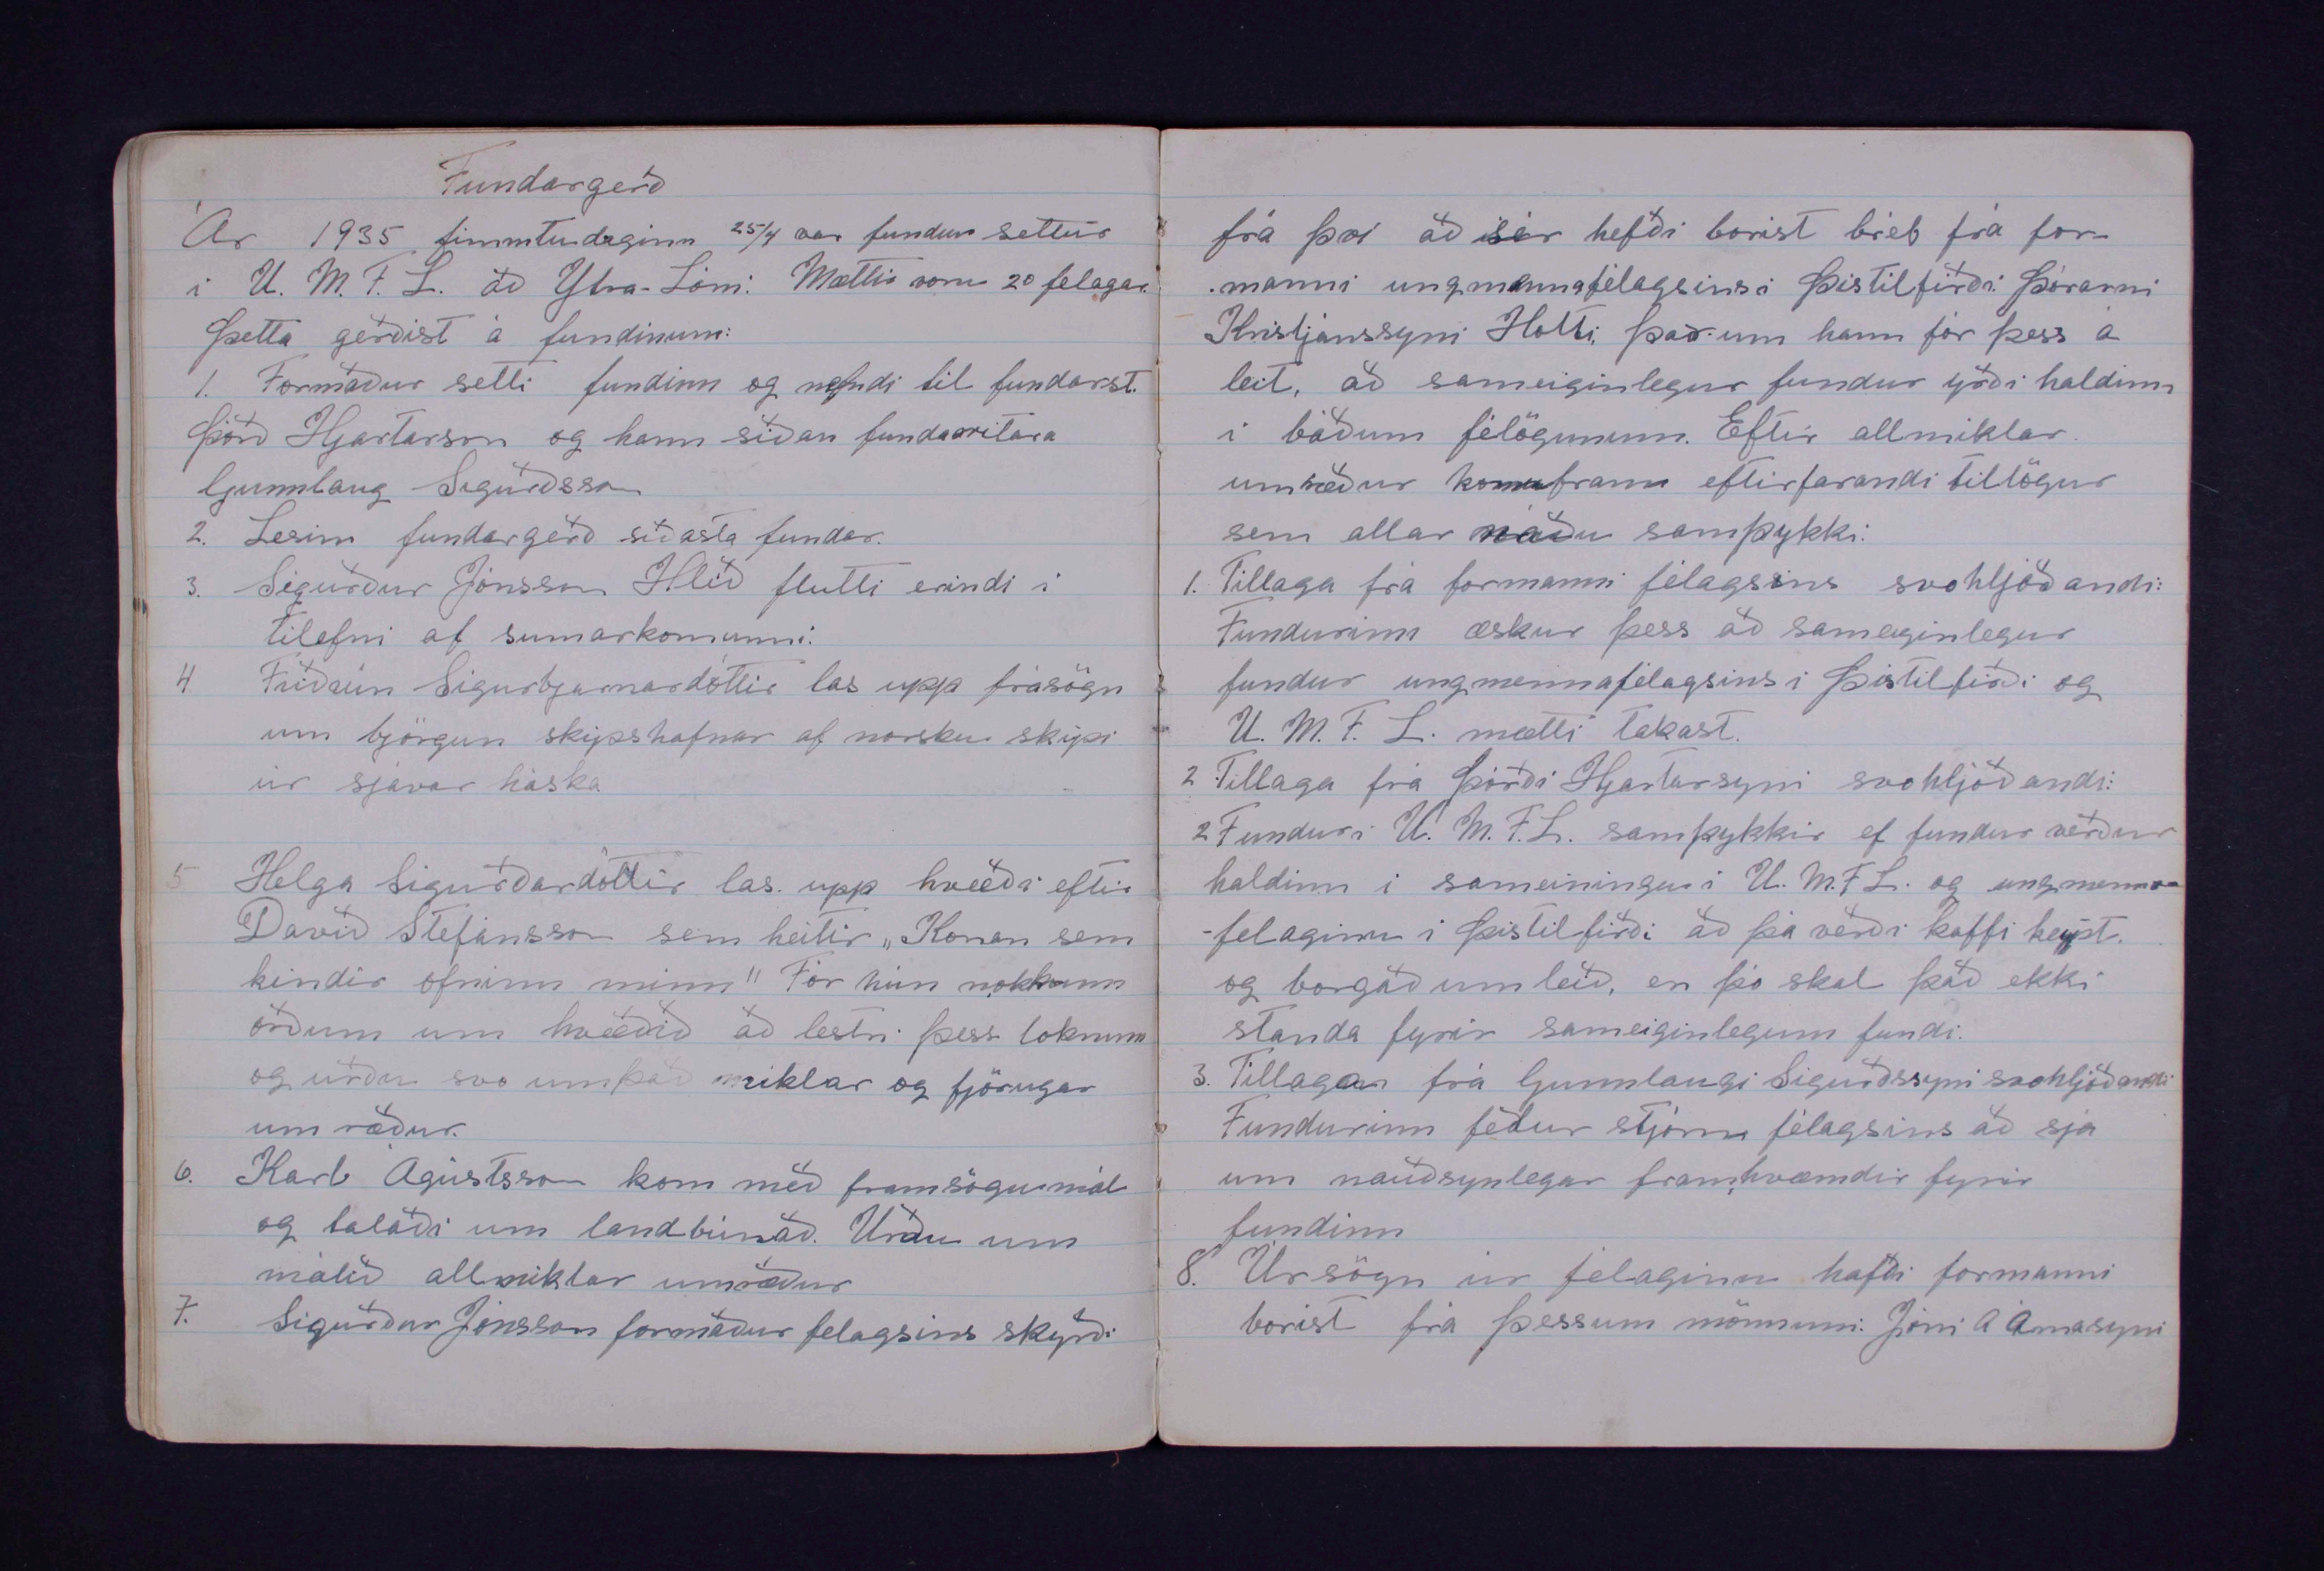 Fundargerð
Ár 1935 fimmtudaginn 25/4 var fundur settur
í U. M. F. L. að Ytra-Lóni. Mættir voru 20 felagar.
Þetta gerðist á fundinum:
1. Formaður setti fundinn og nefndi til fundarst.
Þórð Hjartarson og hann síðan fundarritara
Gunnlaug Sigurðsson
2. Lesin fundargerð síðasta fundar.
3. Sigurður Jónsson Hlíð flutti erindi í
tilefni af sumarkomunni.
4 Friðrún Sigurbjarnardóttir las upp frásögn
um björgun skipshafnar af norsku skipi
úr sjávar háska
5 Helga Sigurðardóttir las upp kvæði eftir
Davíð Stefánsson sem heitir „Konan sem
kindir ofninn minn" Fór hún nokkrum
orðum um kvæðið að lestri þess loknum
og urðu svo um það miklar og fjörugar
um ræður.
6. Karl Ágústsson kom með framsögu mál
og talaði um landbúnað. Urðu um
málið all miklar umræður
7. Sigurður Jónsson formaður felagsins skýrði
frá því að sér hefði borist bréf frá for-
manni ungmennafélagsins í Þistilfirði Þórarni
Kristjánssyni Holti, þar um hann fór þess á
leit, að sameiginlegur fundur yrði haldinn
í báðum félögunum. Eftir allmiklar
umræður komu fram eftirfarandi tillögur
sem allar náðu samþykki:
1. Tillaga frá formanni félagsins svohljóðandi:
Fundurinn æskur þess að sameiginlegur
fundur ungmennafélagsins í Þistilfirði og
U. M. F. L. mætti takast.
2 Tillaga frá Þórði Hjartarsyni svohljóðandi:
2 Fundur í U. M. F. L. samþykkir ef fundur verður
haldinn í sameiningu í U. M. F L. og ungmenna-
-felaginu í Þistilfirði að þá verði kaffi keypt.
og borgað um leið, en þó skal það ekki
standa fyrir sameiginlegum fundi.
3. Tillaga frá Gunnlaugi Sigurðssyni svohljóðandi
Fundurinn felur stjórn félagsins að sjá
um nauðsynlegar framkvæmdir fyrir
fundinn
8. Úrsögn úr félaginu hafði formanni
borist frá þessum mönnum: Jóni Á Árnasyni